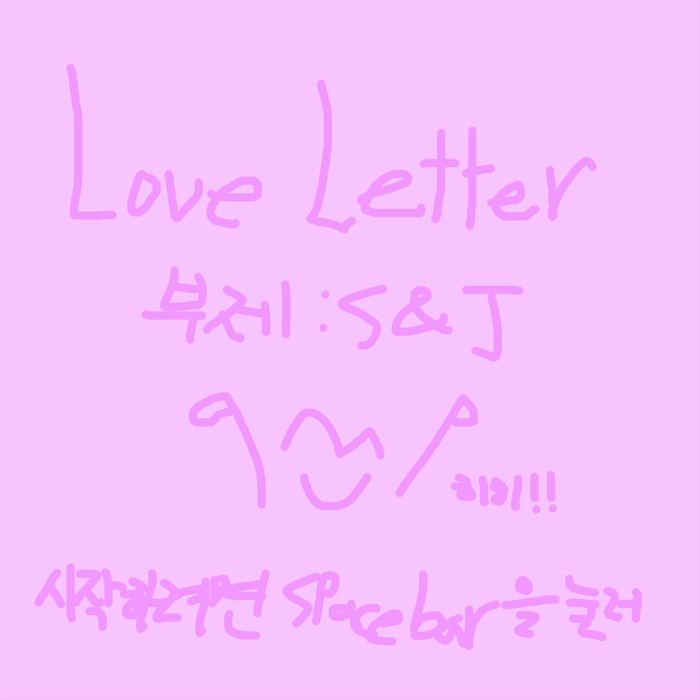 Love Letter
부제:S&J
히히!!
시작하려면 Spacebar을 눌러